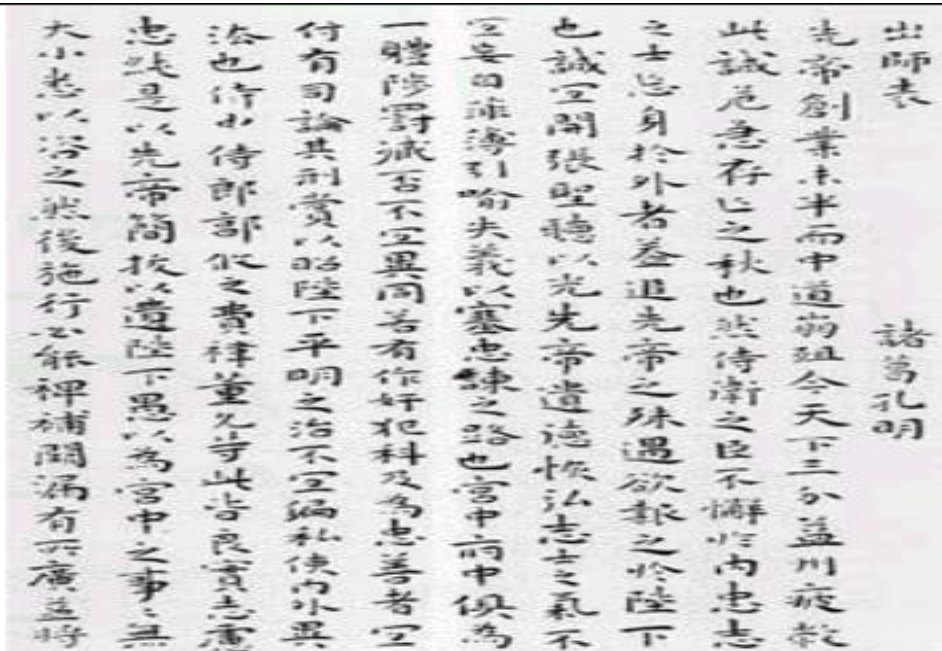 出師表 諸葛孔明
先帝創業未半而中道崩殂今天下三分益州疲敝
此誠危急存亡之秋也然侍衛之臣不懈於內忠志
之士忘身於外者蓋追先帝之殊遇欲報之於陛下
也誠宜開張聖聽以光先帝遺德恢弘志士之氣不
宜妄自菲薄引喻失義以塞忠諫之路也宮中府中俱為
一體陟罰臧否不宜異同若有作奸犯科及為忠善者宜
付有司論其刑賞以昭陛下平明之治不宜偏私使內外異
法也侍中侍郎郭攸之費禕董允等此皆良實志慮
忠純是以先帝簡拔以遺陛下愚以為宮中之事〻無
大小悉以咨之然後施行必能裨補闕漏有所廣益將